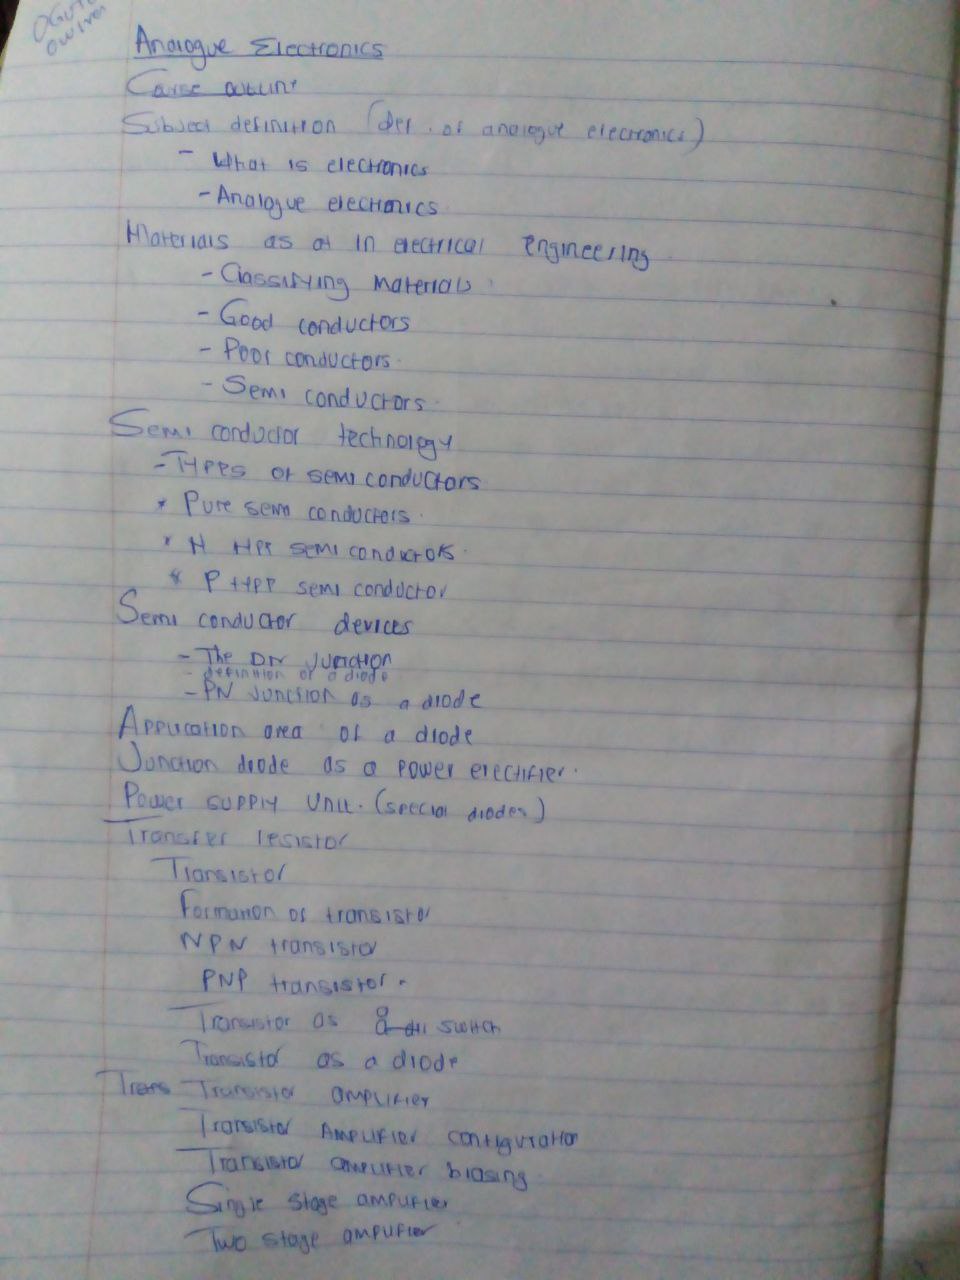 Analogue Electronics
Course outline
Subject definition (Def. of analogue electronics)
- What is electronics
- Analogue electronics.
Materials as at in electrical engineering.
- Classifying materials.
- Good conductors
- Poor conductors.
- Semi conductors.
Semi conductor technology
- Types of semi conductors
* Pure semi conductors.
* N type semi conductors.
* P type semi conductor
Semi conductor devices
- The PN junction
- definition of a diode
- PN Junction as a diode
Application area of a diode
Junction diode as a power erectifier.
Power supply unit. (special diodes)
Transfer resistor
Transistor
Formation of transistor
NPN transistor
PNP transistor.
Transistor as a switch
Transistor as a diode
Trans Transistor amplifier
Transistor Amplifier configuration
Transistor amplifier biasing.
Single stage amplifier
Two stage amplifier